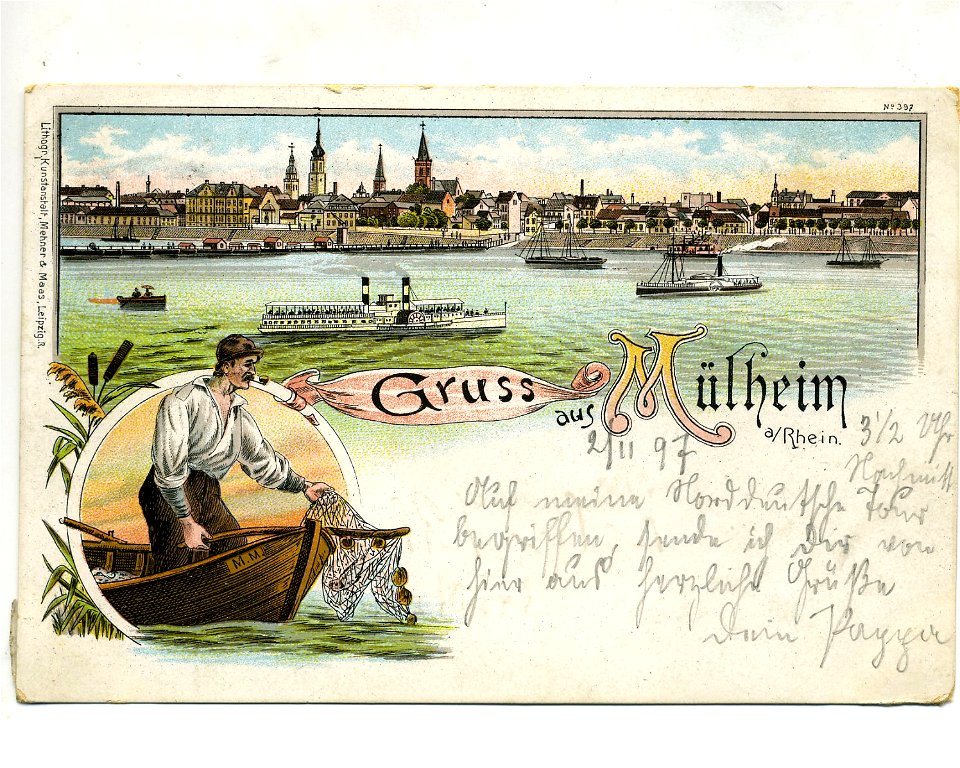 No 397
Lithogr. Kunstanstalt, Mehner & Maas, Leipzig R.
Gruss
aus Mülheim
a/Rhein.
M.M.
2/11 97
3 1/2 Uhr
Nachmitt
Auf meine Norddeutsche Tour
begriffen, sende ich Dir von
hier aus herzliche Grüße
Dein Pappa